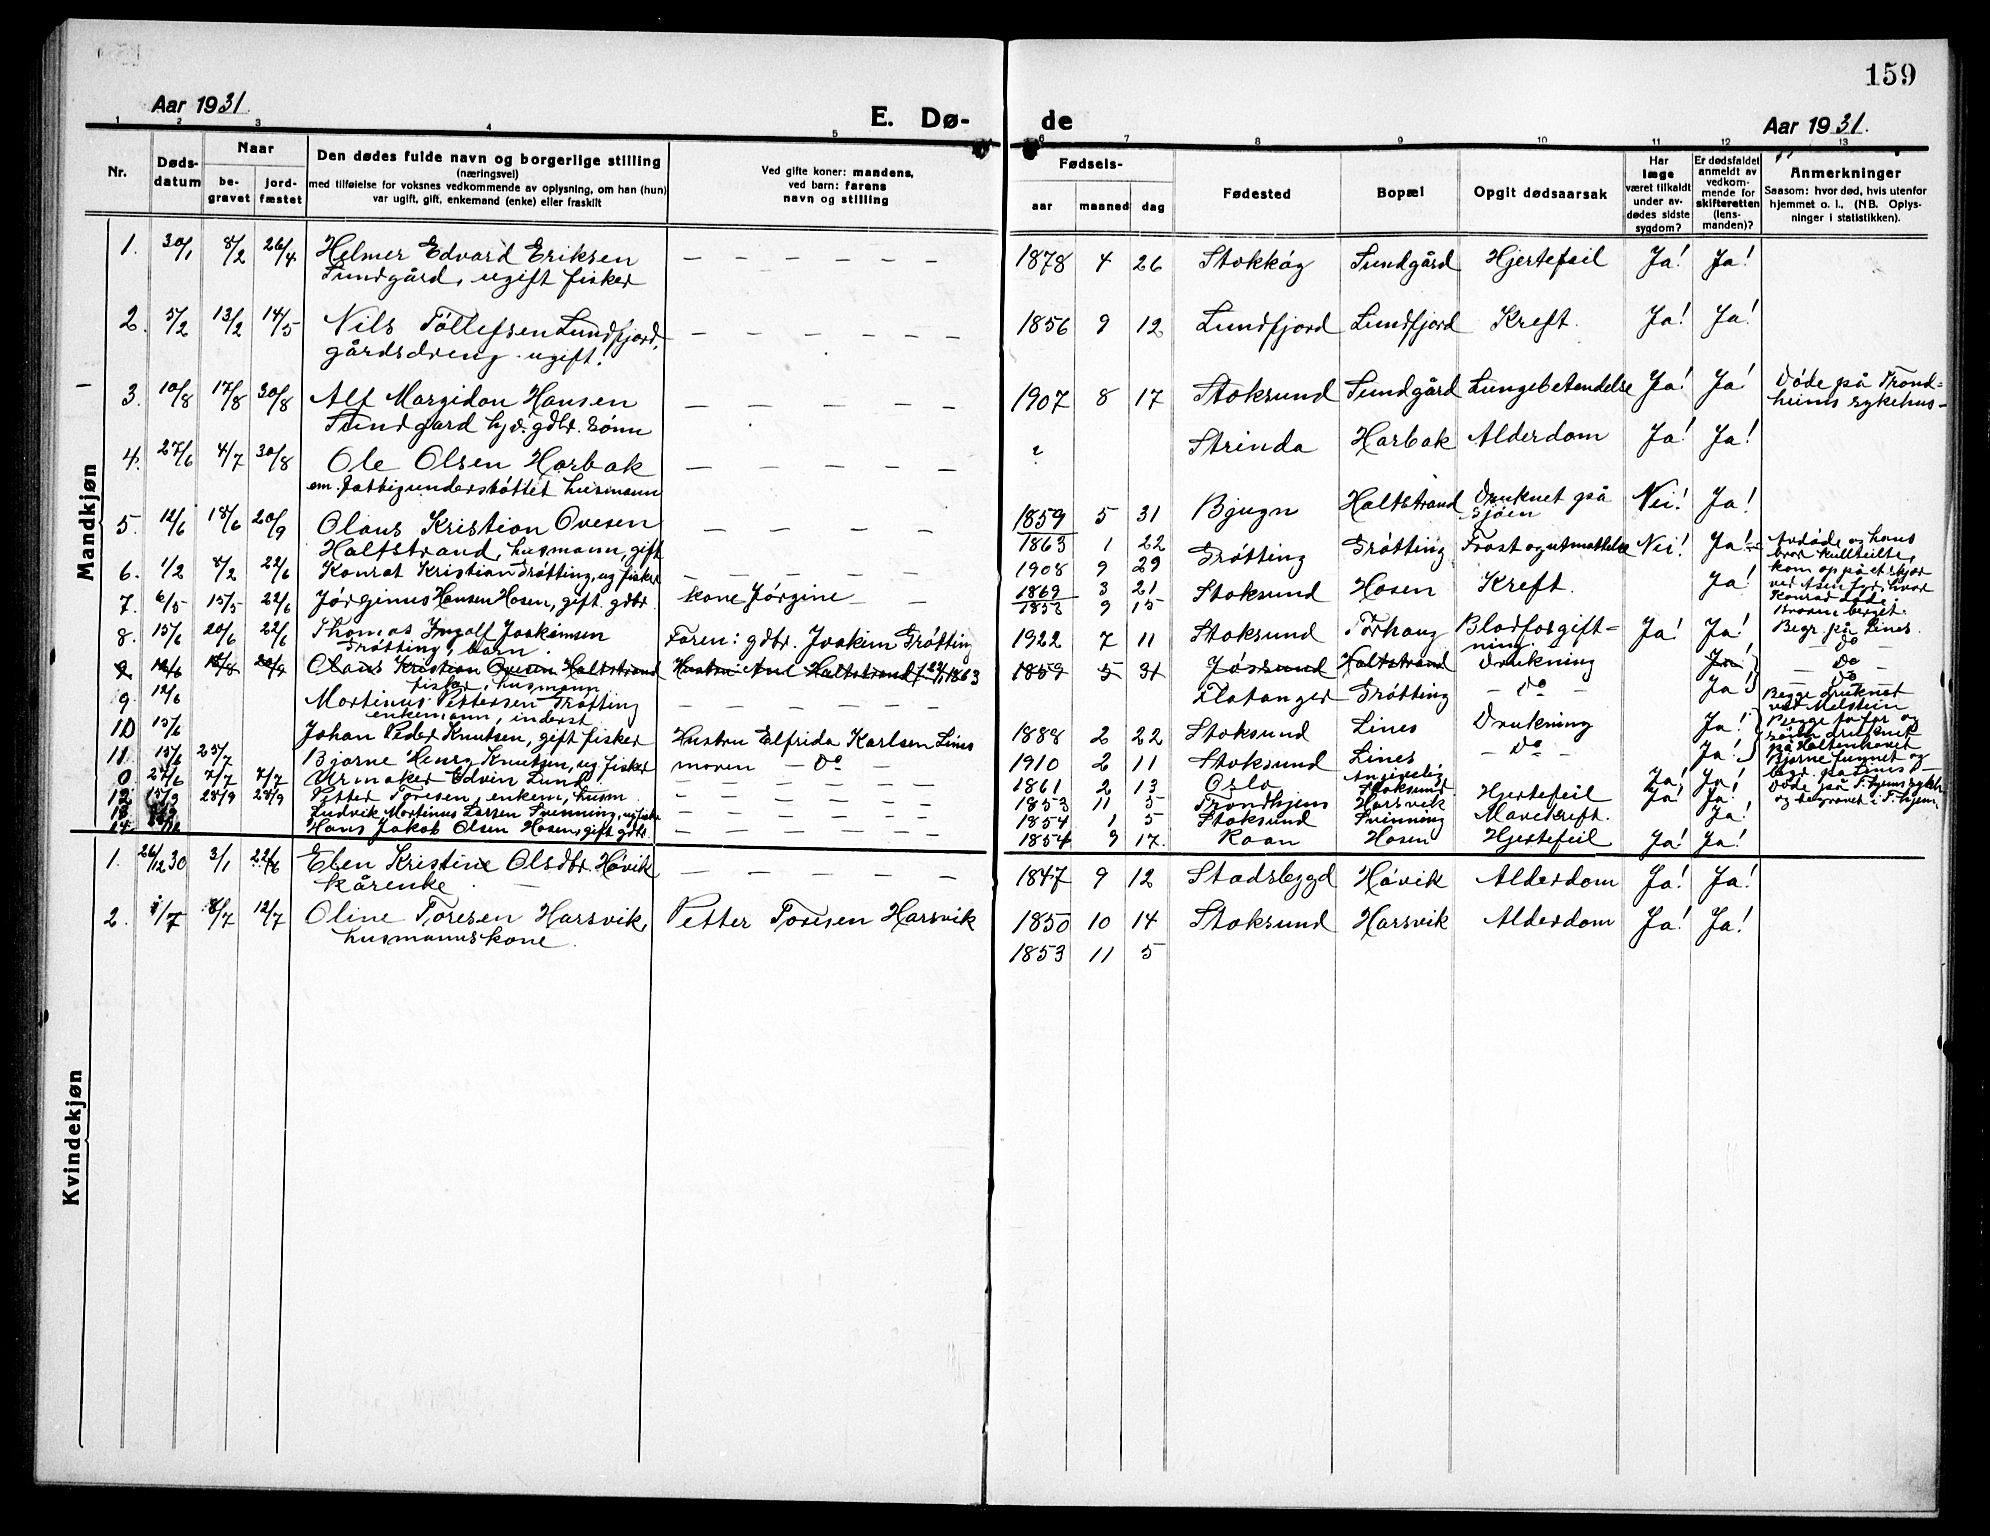 159
Aar 1931.
E. Dø-
de
Aar 1931.
1 2 3 4 5 6 7 8 9 10 11 12 13
Nr.
Døds-
datum
Naar
be-
gravet
jord-
fæstet
Den dødes fulde navn og borgerlige stilling
(næringsvei)
med tilføielse for voksnes vedkommende av oplysning, om han (hun)
var ugift, gift, enkemand (enke) eller fraskilt
Ved gifte koner: mandens,
ved barn: farens
navn og stilling
Fødsels-
aar maaned dag
Fødested
Bopæl
Opgit dødsaarsak
Har
læge
været tilkaldt
under av-
dødes sidste
sygdom?
Er dødsfaldet
anmeldt av
vedkom-
mende for
skifteretten
(lens-
manden)?
Anmerkninger
Saasom: hvor død, hvis utenfor
hjemmet o. l., (NB. Oplys-
ninger i statistikken).
Mandkjøn
1. 30/1 8/2 26/4 Helmer Edvard Eriksen — — — — — — 1878 4 26 Stokkøy Sundgård Hjertefeil Ja! Ja!
Sundgård, ugift fisker
2. 5/2 13/2 14/5 Nils Tøllefsen Lundfjord, — — — — — — 1856 9 12 Lundfjord Lundfjord Kreft. Ja! Ja!
gårdsdreng - ugift.
3. 10/8 17/8 30/8 Alf Margidon Hansen — — — — — — 1907 8 17 Stoksund Sundgård Lungebetendelse Ja! Ja! Døde på Trond=
Sundgård hj.v. gdbr. sønn heims sykehus -
4. 27/6 4/7 30/8 Ole Olsen Harbak — — — — — — ? Strinda Harbak Alderdom Ja! Ja!
em. fattigunderstøttet husmann
5. 12/6 18/6 20/9 Olaus Kristian Ovesen — — — — — 1859 5 31 Bjugn Haltstrand Druknet på Nei! Ja!
Haltstrand, husmann, gift 1863 1 22 sjøen
6. 1/2 8/2 22/6 Konrat Kristian Grøtting, ug fisker — — — — — 1908 9 29 Grøtting Grøtting Frost og utmattelse Nei! Ja! Avdøde og hans
bror kullseilte,
kom op på et skjær
7. 6/5 15/5 22/6 Jørginus Hansen Hosen, gift. gdbr. kone Jørgine — — 1869 3 21 Stoksund Hosen Kreft. Ja!
1853 9 15
Konrad døde.
Broren berget.
8. 15/6 20/6 22/6 Thomas Ingolf Joakimsen Faren: gdbr. Joakim Grøtting 1922 7 11 Stoksund Blodforgift- Ja! Ja! Begr. på Lines.
Grøtting, barn. ning.
12/6 18/8 20/9 Olaus Kristian Ovesen Haltstrand Hustru Ane Haltstrand f. 22/1 1863 1859 5 31 Jøssund Haltstrand Drukning Ja! — Do —
fisker, husmann
9 12/6 Mortinus Pettersen Grøtting — — — — — — Flatanger Grøtting — Do — Ja! — Do —
enkemann, inderst Begge druknet
ved Melstein
10 15/6 Johan Peder Knutsen, gift fisker Hustru Elfrida Karlsen Lines 1888 2 22 Stoksund Lines Drukning Ja! Begge far og
11. 15/6 25/7 Bjarne Henry Knutsen, ug fisker moren — Do — — 1910 2 11 Stoksund Lines — Do — Ja! sønn druknet
på Haltenhavet
Bjarne funnet og
begr. på Lines —
0 27/6 7/7 7/7 Urmaker Edvin Lund — — — — — 1861 2 13 Oslo Stoksund Ja! Ja! Døde på T.hjems sykeh.
og begravet i T.hjem.
12 15/9 23/9 23/9 Petter Toresen, enkem, husm. — — — — — 1853 11 5 Trondhjem Harsvik Hjertefeil Ja! Ja!
13 Ludvik Mortinus Larsen Svenning, ug fisker — — — — — 1854 1 5 Stoksund Svinning Mavekreft. Ja!
14 Hans Jakob Olsen Hosen, gift gdbr. — — — — — 1854 9 17. Roan Hosen Hjertefeil Ja! Ja!
Kvindekjøn
1. 26/12 30 3/1 22/6 Elen Kristine Olsdtr Høvik — — — — — — 1847 9 12 Stadsbygd Høvik Alderdom Ja! Ja!
kårenke. —
2. 1/7 8/7 12/7 Oline Toresen Harsvik, Petter Toresen Harsvik 1850 10 14 Stoksund Harsvik Alderdom Ja! Ja!
husmannskone. 1853 11 5